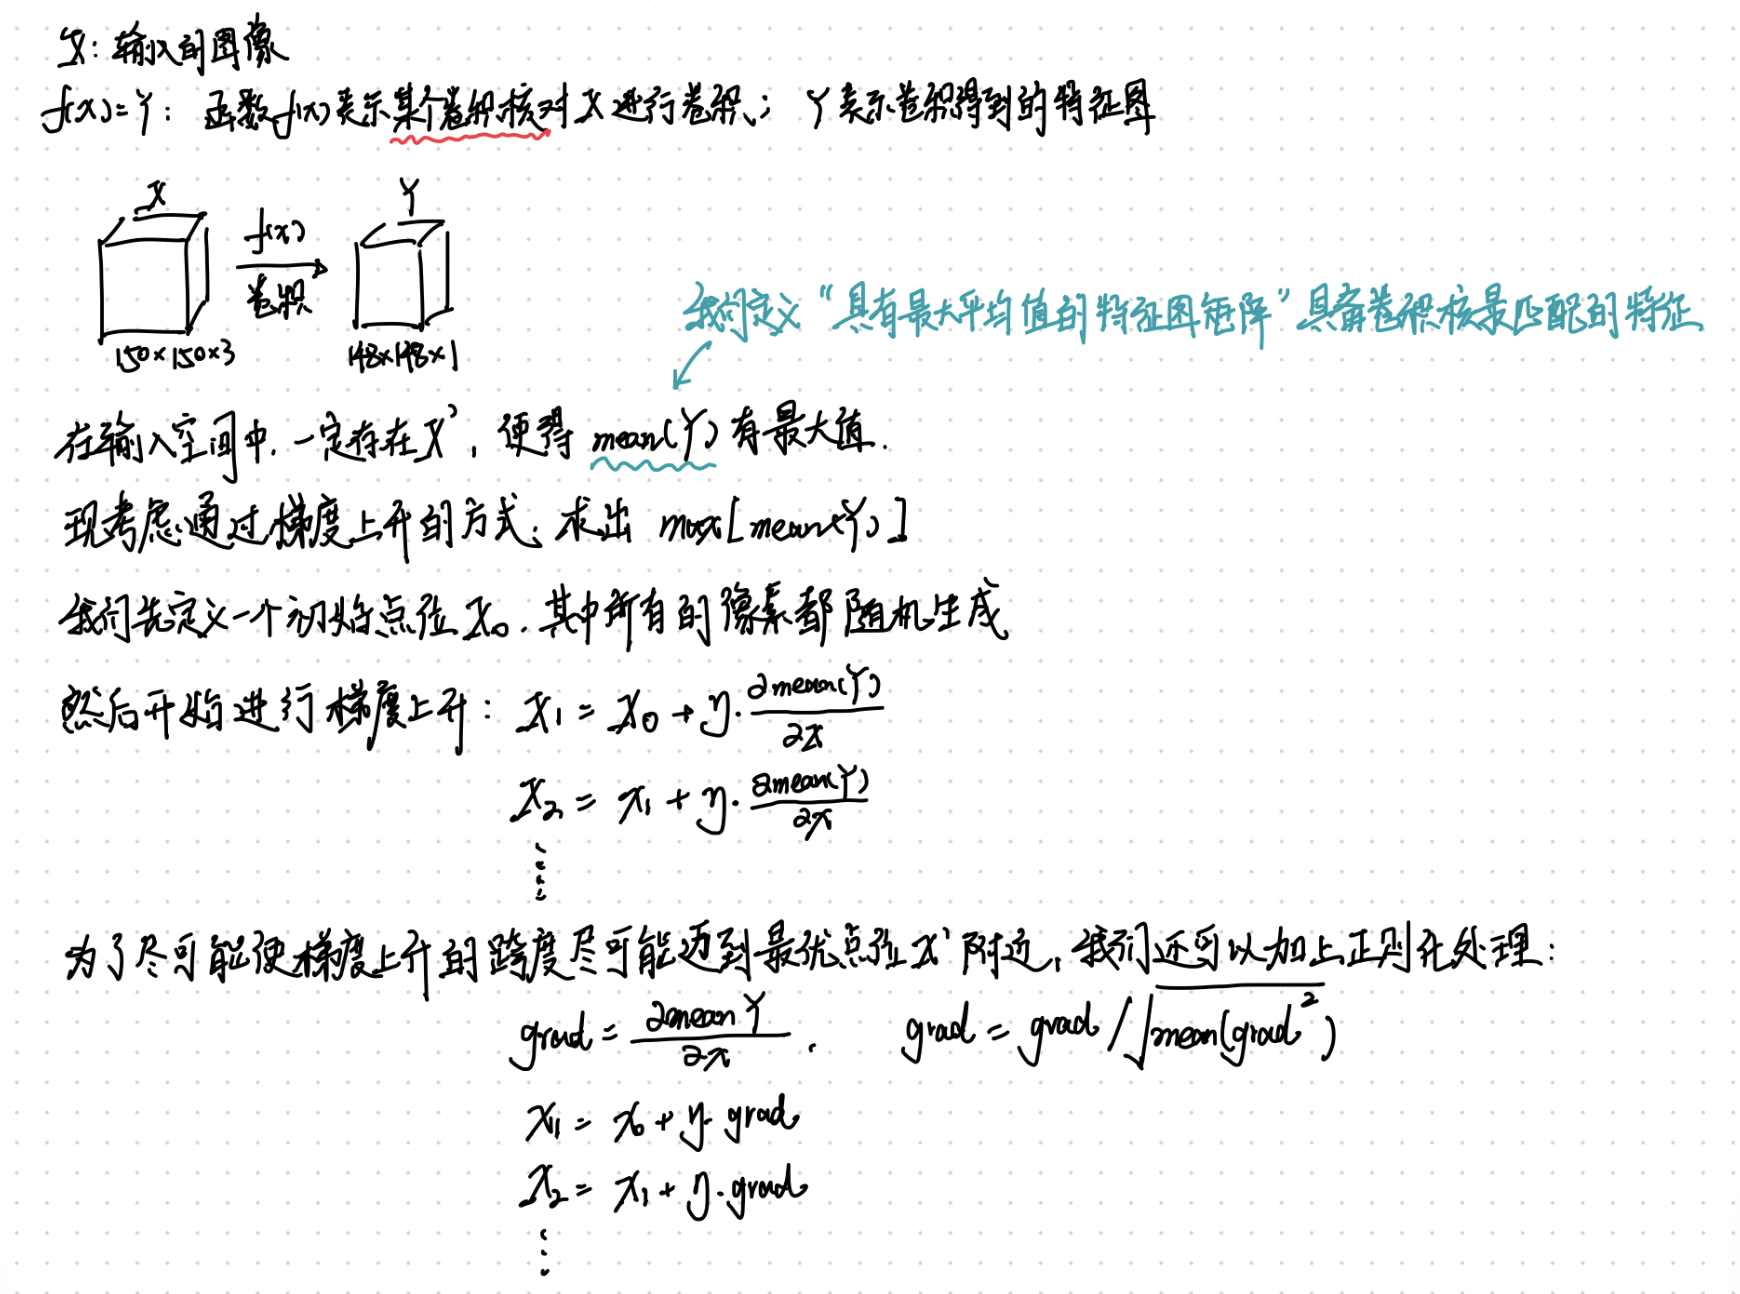 X: 输入的图像
f(x)=Y: 函数f(x)表示某个卷积核对X进行卷积; Y表示卷积得到的特征图
X
Y
f(x)
卷积
150×150×3
148×148×1
我们定义“具有最大平均值的特征图矩阵”具备卷积核最匹配的特征
在输入空间中,一定存在X',使得 mean(Y) 有最大值.
现考虑通过梯度上升的方式,求出 max[mean(Y)]
我们先定义一个初始点位X₀,其中所有的像素都随机生成
然后开始进行梯度上升: X₁ = X₀ + η·∂mean(Y)/∂X
X₂ = x₁ + η·∂mean(Y)/∂x
⋮
为了尽可能使梯度上升的跨度尽可能迈到最优点位X'附近,我们还可以加上正则化处理:
grad = ∂mean Y/∂x , grad = grad / √mean(grad²)
x₁ = x₀ + η·grad
x₂ = x₁ + η·grad
⋮